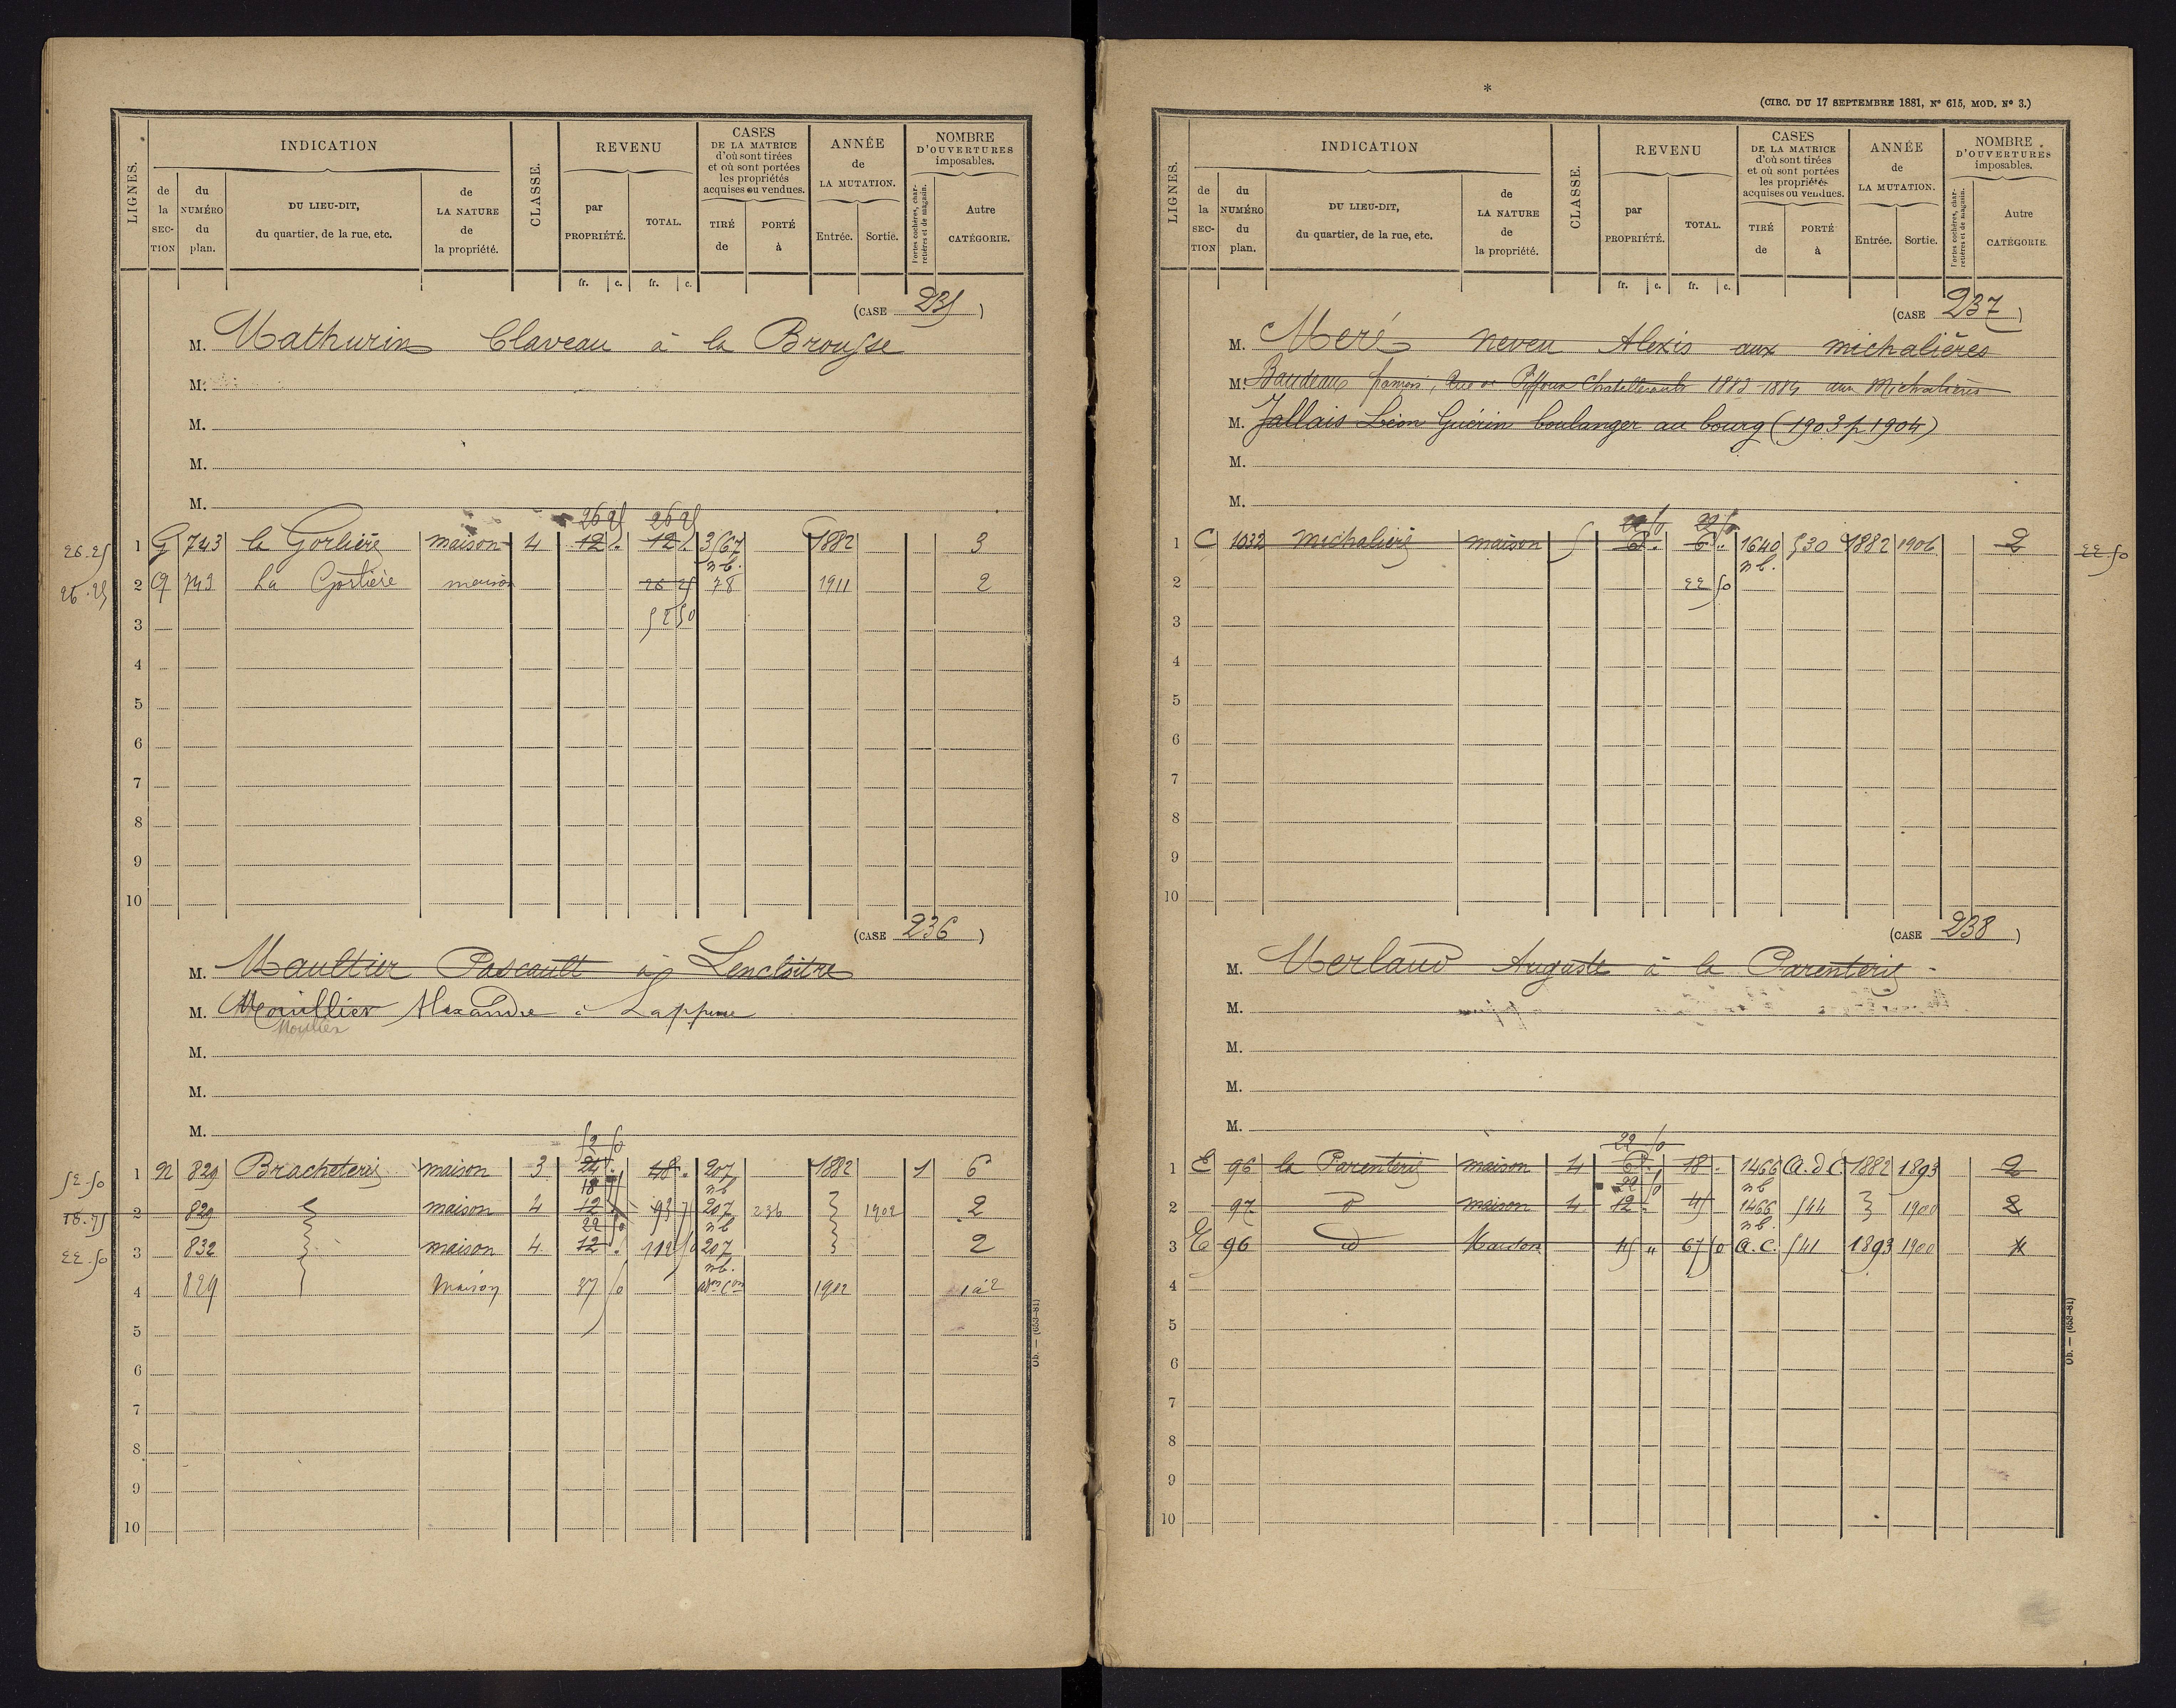 LIGNES.
INDICATION
CLASSE.
REVENU
CASES
DE LA MATRICE
d'où sont tirées
et où sont portées
les propriétés
acquises ou vendues.
ANNÉE
de
LA MUTATION.
NOMBRE
D'OUVERTURES
imposables.
de la SECTION
du NUMÉRO du plan.
DU LIEU-DIT,
du quartier, de la rue, etc.
de LA NATURE de la propriété.
par PROPRIÉTÉ.
TOTAL.
TIRÉ de
PORTÉ à
Entrée.
Sortie.
Portes cochères, charretières et de magasin.
Autre CATÉGORIE.
fr. c. fr. c.
(CASE 235)
M. Mathurin Claveau à la Brousse
M.
M.
M.
M.
26 25 26 25
26.25 1 G 743 la Gorlière maison 4 12 . 12 . 3567 1882 3
nb.
26.25 2 G 743 La Gorlière maison 26 25 78 1911 2
3 52 50
4
5
6
7
8
9
10
(CASE 236)
M. Maultier Pascault à Lencloitre
M. Mouillier Alexandre à Lappuie
Moulier
M.
M.
M.
52 50
52.50 1 N 829 Bracheterie maison 3 24 . 48 . 207 1882 1 6
18 75 nb
18.75 2 829 maison 4 12 93 75 207 236 1902 2
22 50 nb
22.50 3 832 maison 4 12 . 112 50 207 2
nb.
4 829 Maison 37 50 1902 1 à 2
5
6
7
8
9
10
Ob. — (653-81)
*
(CIRC. DU 17 SEPTEMBRE 1881, Nº 615, MOD. Nº 3.)
LIGNES.
INDICATION
CLASSE.
REVENU
CASES
DE LA MATRICE
d'où sont tirées
et où sont portées
les propriétés
acquises ou vendues.
ANNÉE
de
LA MUTATION.
NOMBRE
D'OUVERTURES
imposables.
de la SECTION
du NUMÉRO du plan.
DU LIEU-DIT,
du quartier, de la rue, etc.
de LA NATURE de la propriété.
par PROPRIÉTÉ.
TOTAL.
TIRÉ de
PORTÉ à
Entrée.
Sortie.
Portes cochères, charretières et de magasin.
Autre CATÉGORIE.
fr. c. fr. c.
(CASE 237)
M. Meré neveu Alexis aux michalières
M. Baudeau Chatellerault 1883 1884 aux Michalières
M. Jallais Léon Guérin boulanger au bourg (1903 p 1904)
M.
M.
22 50 22 50
1 C 1032 michalière maison 5 6 . 6 . 1640 530 1882 1906 2 22 50
nb.
2 22 50
3
4
5
6
7
8
9
10
(CASE 238)
M. Merlaud Auguste à la Parenterie
M.
M.
M.
M.
22 50
1 E 96 la Parenterie maison 4 6 . 18 . 1466 a. d C. 1882 1893 2
22 50 nb
2 97 d maison 4 12 . 45 1466 544 1900 2
nb.
3 E 96 d Maison 45 " 67 50 a. C. 541 1893 1900 4
4
5
6
7
8
9
10
Ob. — (653-81)